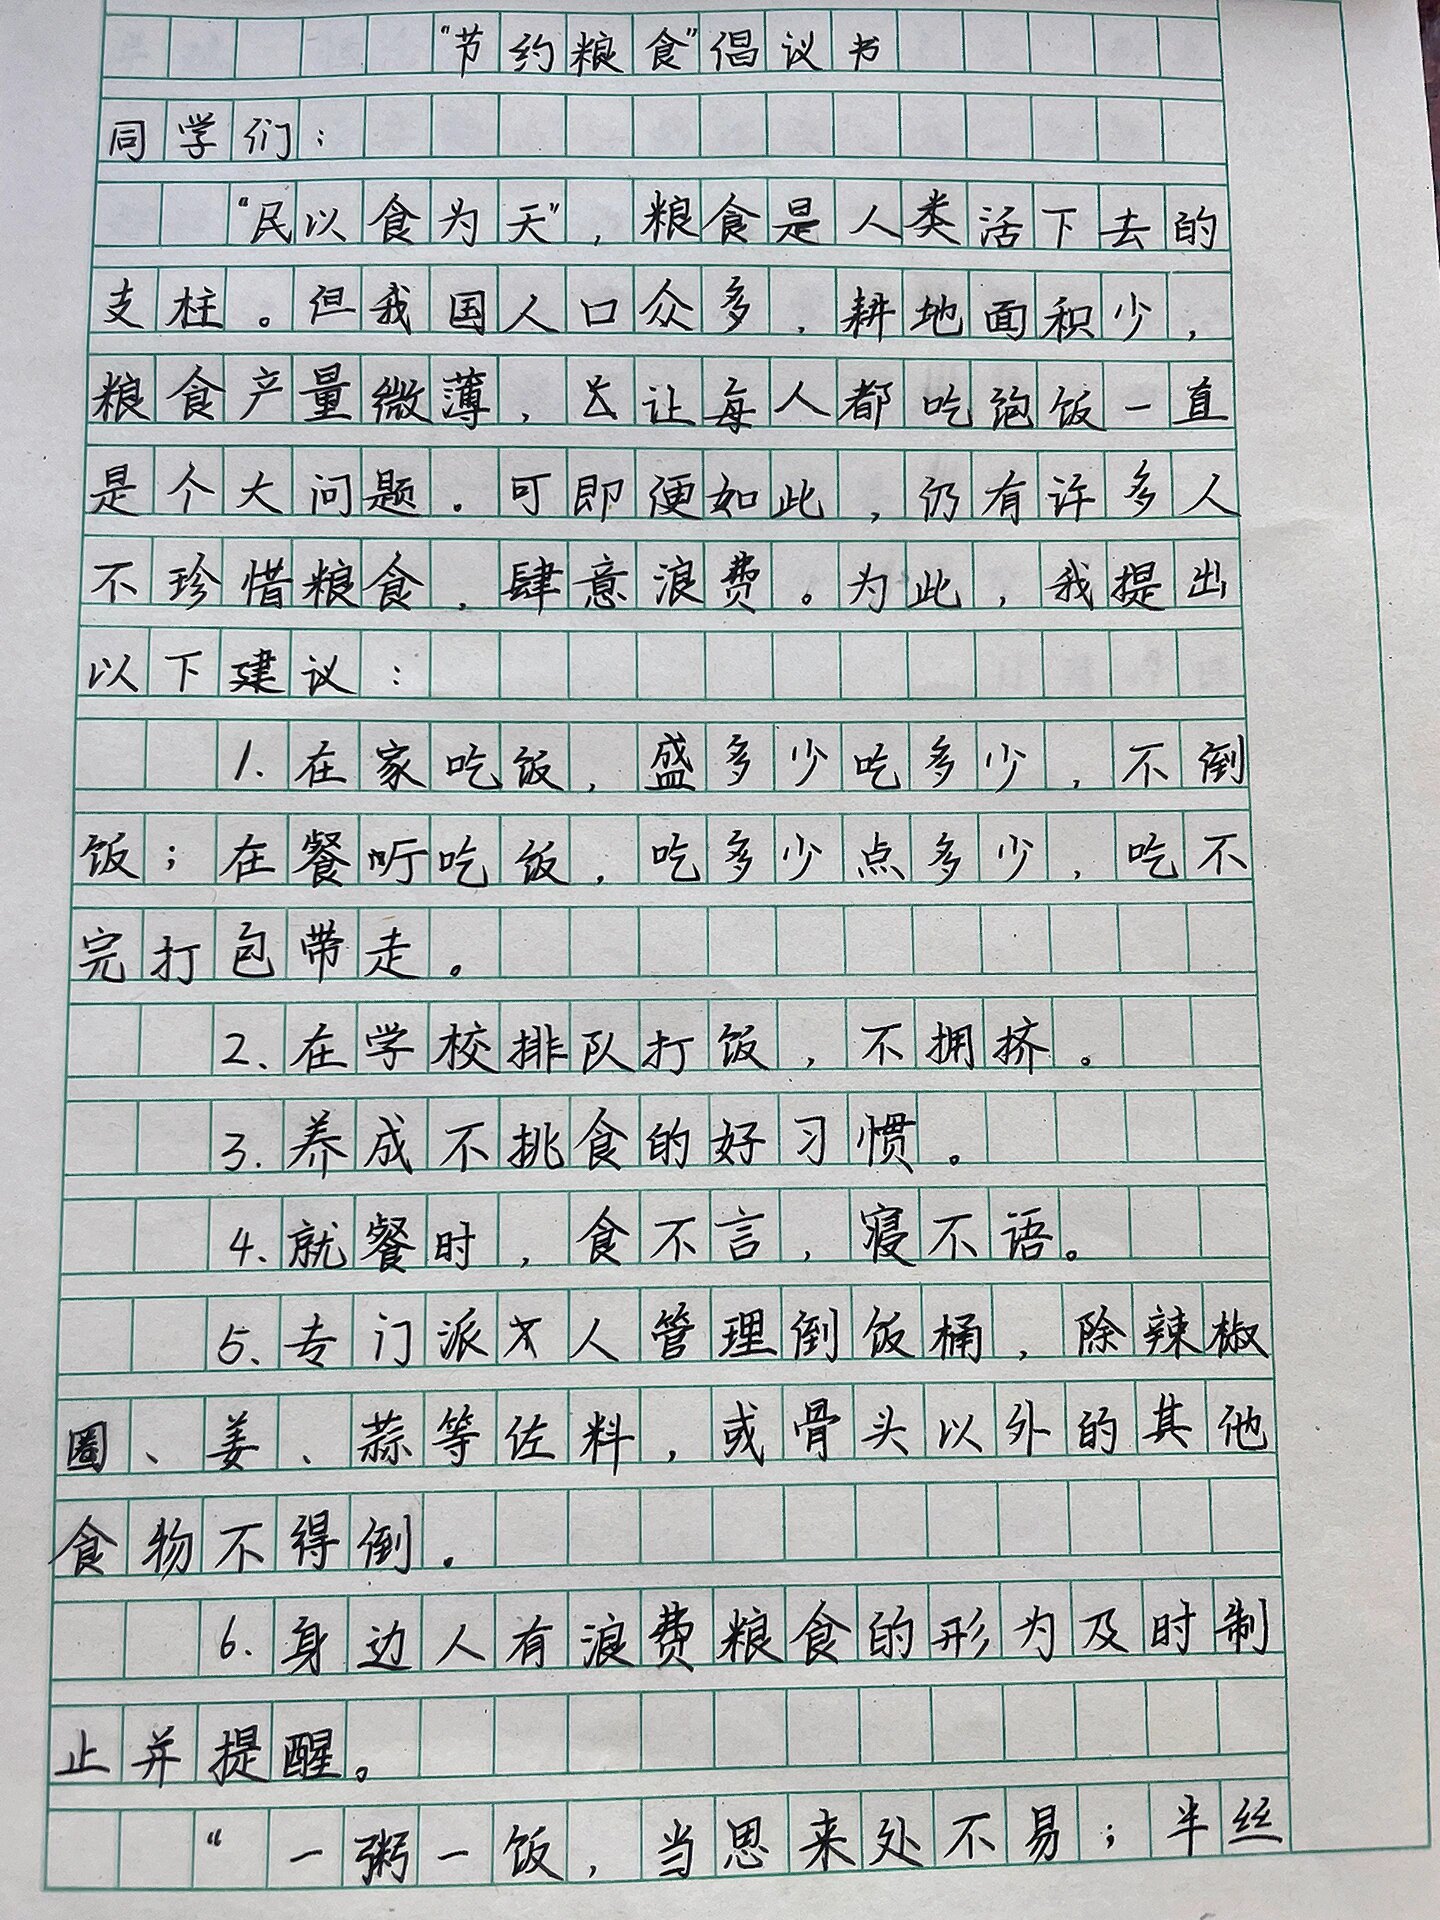 “节约粮食”倡议书
同学们：
“民以食为天”，粮食是人类活下去的
支柱。但我国人口众多，耕地面积少，
粮食产量微薄，让每人都吃饱饭一直
是个大问题。可即便如此，仍有许多人
不珍惜粮食，肆意浪费。为此，我提出
以下建议：
1.在家吃饭，盛多少吃多少，不倒
饭；在餐听吃饭，吃多少点多少，吃不
完打包带走。
2.在学校排队打饭，不拥挤。
3.养成不挑食的好习惯。
4.就餐时，食不言，寝不语。
5.专门派人管理倒饭桶，除辣椒
圈、姜、蒜等佐料，或骨头以外的其他
食物不得倒。
6.身边人有浪费粮食的形为及时制
止并提醒。
“一粥一饭，当思来处不易；半丝